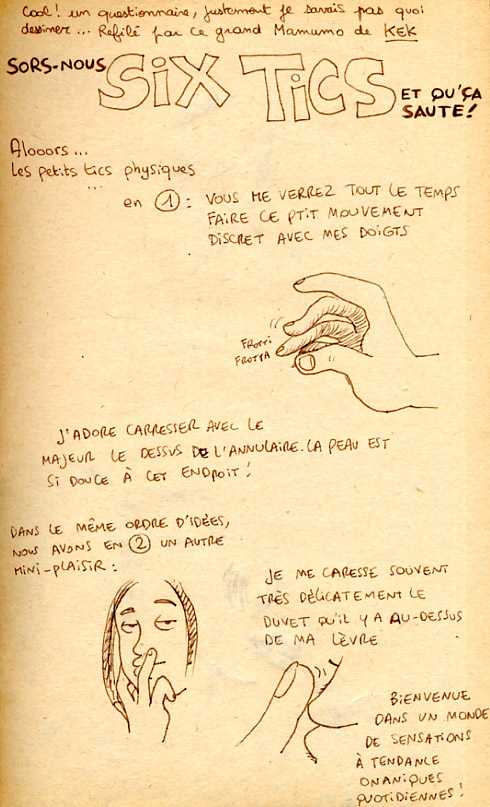 Cool! un questionnaire, justement je savais pas quoi
dessiner... Refilé par ce grand Mamumo de KEK
SORS-NOUS SIX TICS ET QU'ÇA
SAUTE!
Alooors...
Les petits tics physiques
...
en 1 : VOUS ME VERREZ TOUT LE TEMPS
FAIRE CE PTIT MOUVEMENT
DISCRET AVEC MES DOIGTS
FROTTI
FROTTA
J'ADORE CARRESSER AVEC LE
MAJEUR LE DESSUS DE L'ANNULAIRE. LA PEAU EST
SI DOUCE À CET ENDROIT!
DANS LE MÊME ORDRE D'IDÉES,
NOUS AVONS EN 2 UN AUTRE
MINI-PLAISIR :
JE ME CARESSE SOUVENT
TRÈS DÉLICATEMENT LE
DUVET QU'IL Y A AU-DESSUS
DE MA LÈVRE
BIENVENUE
DANS UN MONDE
DE SENSATIONS
À TENDANCE
ONANIQUES
QUOTIDIENNES!